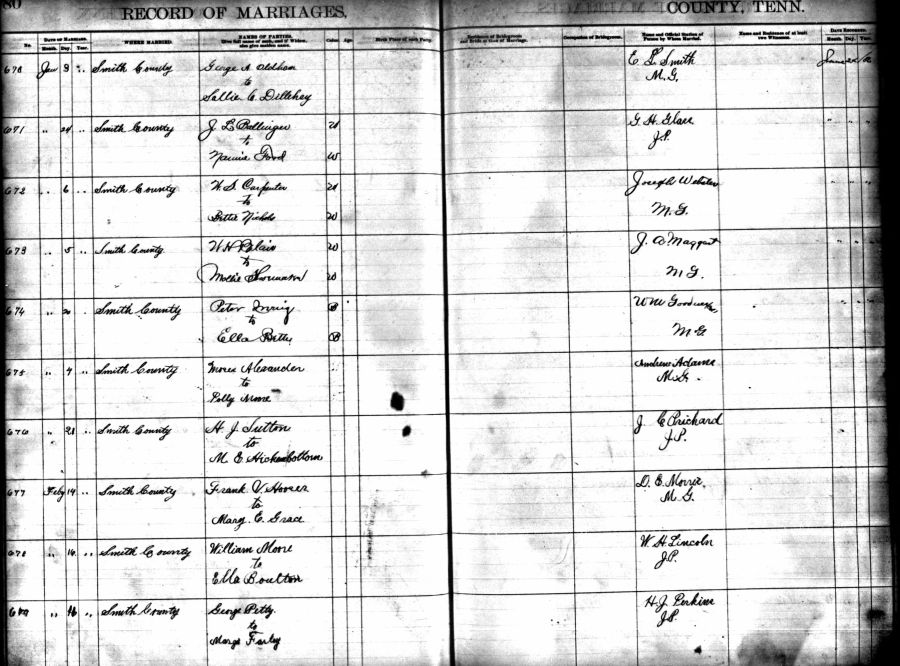 80
RECORD OF MARRIAGES,
COUNTY, TENN.
No.
DATE OF MARRIAGE.
Month. Day. Year.
WHERE MARRIED.
NAMES OF PARTIES.
Give full name of each, and if Widow, also give maiden name.
Color.
Age.
Birth Place of each Party.
Residence of Bridegroom and Bride at time of Marriage.
Occupation of Bridegroom.
Name and Official Station of Person by Whom Married.
Name and Residence of at least two Witnesses.
DATE RECORDED.
Month. Day. Year.
670 Jan 3 " Smith County George A Oldham E L Smith
to M.G.
Sallie C. Dillehay
671 " 24 " Smith County J L Ballinger W G. H. Glass
to J.P.
Nannie Ford W
672 " 6 " Smith County W. S. Carpenter W Joseph Webster
to
Bettie Nichols W M.G.
673 " 5 " Smith County W H W J. A Maggart
to
Mollie W M.G.
674 " " Smith County Peter B W W
to
Ella Betty B M G
675 " 7 " Smith County Moses Alexander Andrew Adams
to M.G.
Polly Moore
676 " 21 " Smith County H. J. Sutton J C Prichard
to J.P.
M. E Hickenbottom
677 Feby 14 " Smith County Frank V. D. E. Morris
to M G
Marg. E. Grace
678 " 16 " Smith County William Moore W. H. Lincoln
to J.P.
Ella Boulton
679 " 16 " Smith County George Petty H. J. Perkins
to J.P.
Margt Farley